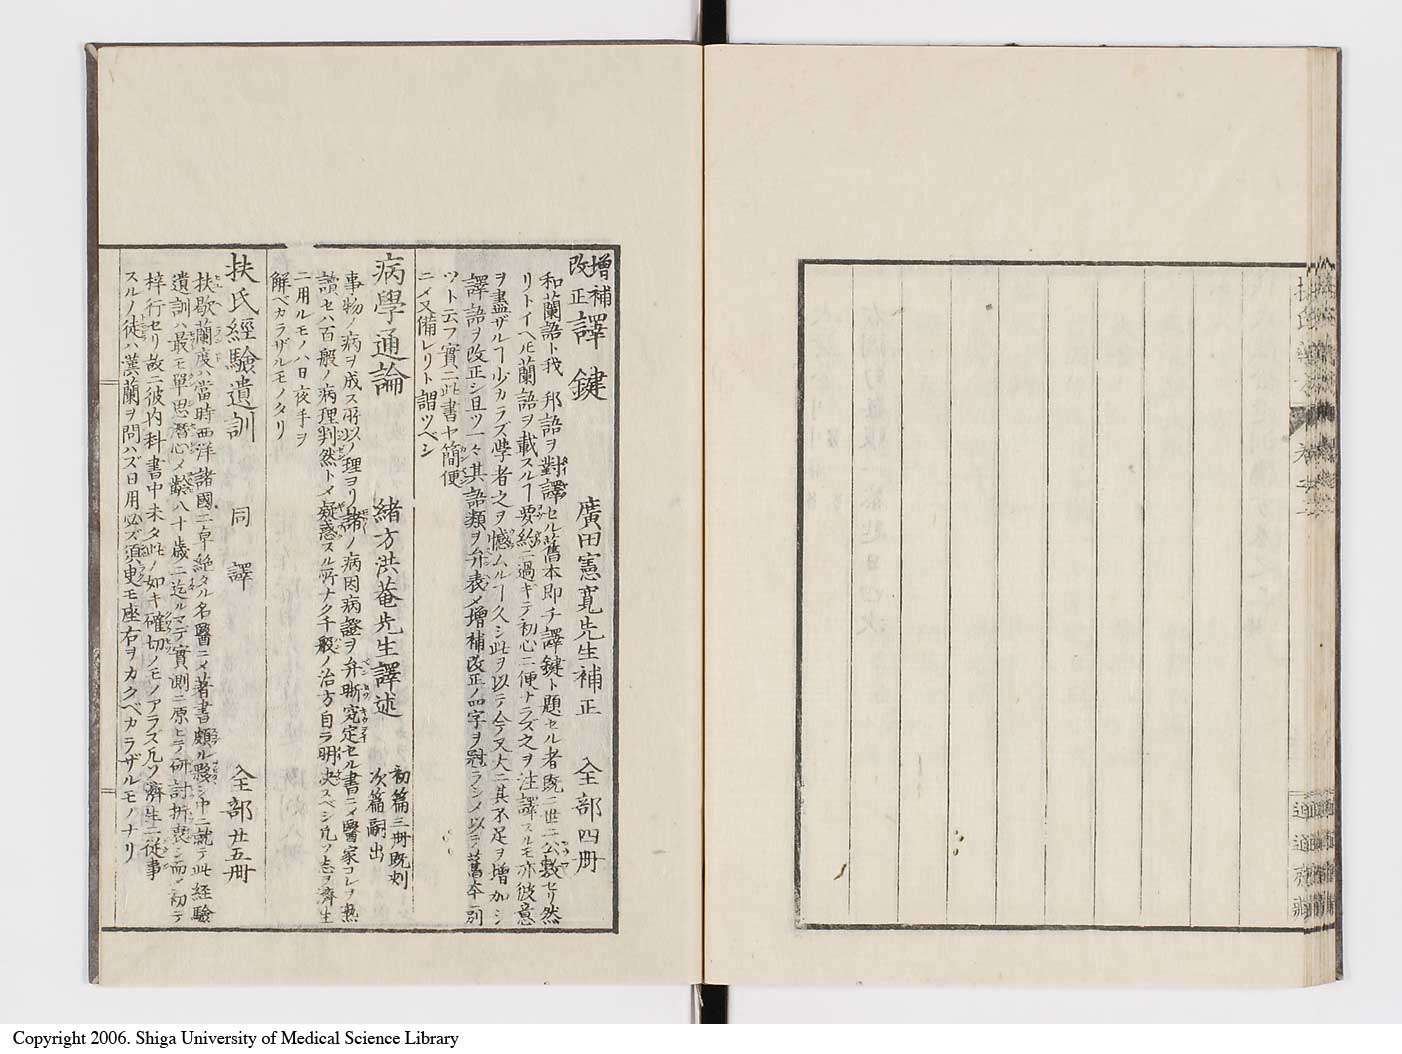 増補
改正
譯鍵 廣田憲寛先生補正 全部四冊
和蘭語ト我 邦語ヲ對譯セル舊本即チ譯鍵ト題セル者既ニ世ニ公敷セリ然
リトイヘ𪜈蘭語ヲ載スルヿ要約ニ過ギテ初心ニ便ナラズ之ヲ注譯スルモ亦彼意
ヲ盡ザルヿ少カラズ學者之ヲ憾ムルヿ久シ此ヲ以テ今又大ニ其不足ヲ増加シ
譯語ヲ改正シ且ツ一々其語類ヲ弁表メ増補改正ノ四字ヲ冠ラシメ以テ舊本ニ別
ツト云フ實ニ此書ヤ簡便
ニメ又備レリト謂ツベシ
病學通論 緒方洪菴先生譯述 初篇三冊既刻
次篇嗣出
事物ノ病ヲ成ス所以ノ理ヨリ諸ノ病因病證ヲ弁晰究定セル書ニメ醫家コレヲ熟
讀セハ百般ノ病理判然トメ疑惑スル所ナク千般ノ治方自ラ明决スベシ凢ソ志ヲ濟生
ニ用ルモノハ日夜手ヲ
解ベカラザルモノタリ
扶氏經驗遺訓 同譯 全部廿五冊
扶歇蘭度ハ當時西洋諸國ニ卓絶タル名醫ニメ著書頗ル夥シ中ニ就テ此經驗
遺訓ハ最モ單思潛心メ齡八十歳ニ迄ルマデ實測ニ原ヒテ研討折衷シ而メ初テ
梓行セリ故ニ彼内科書中未タ此ノ如キ確切ノモノアラズ凢ソ濟生ニ從事
スルノ徒ハ漢蘭ヲ問ハズ日用必ズ須臾モ座右ヲカクベカラザルモノナリ
Copyright 2006. Shiga University of Medical Science Library